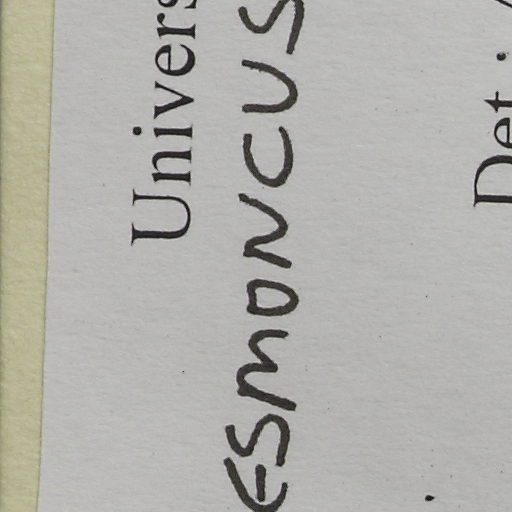 Univers
ESMONCUS
Det :